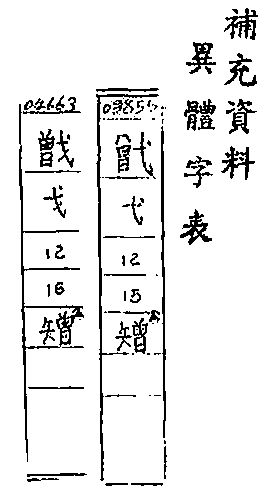 補充資料
異體字表
弋
12
15
矰
04663
戈
12
16
矰